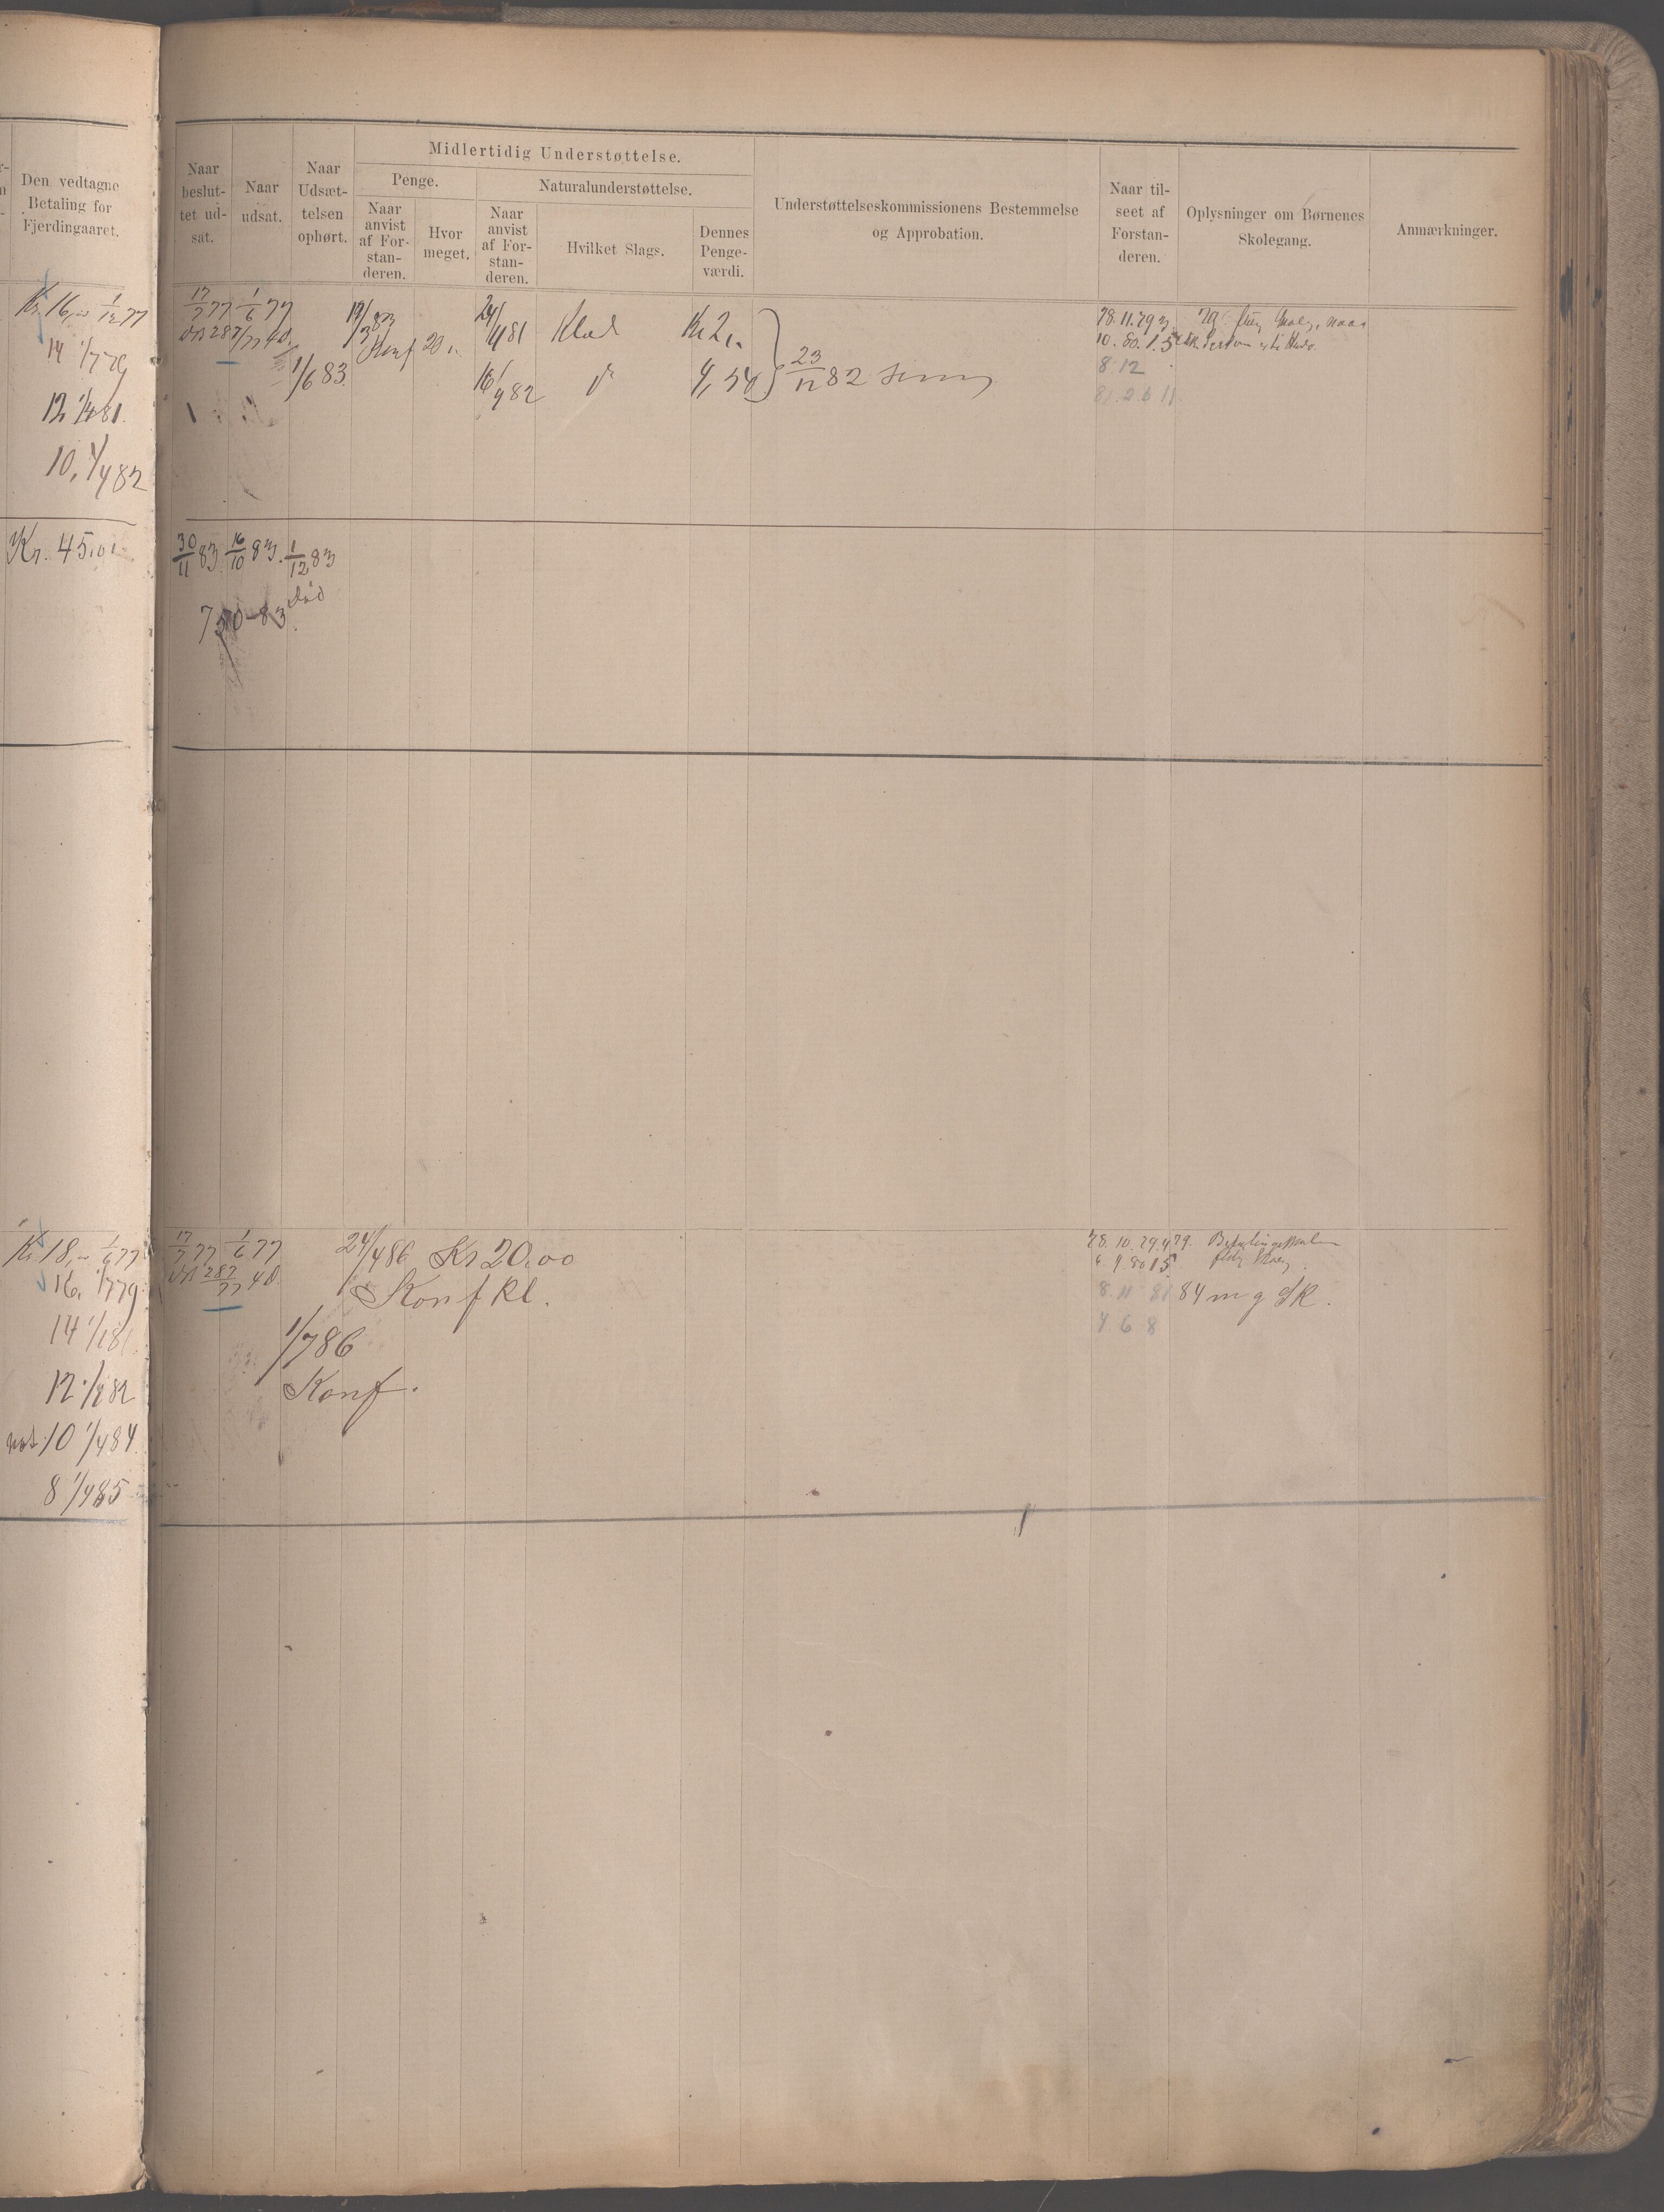 Den vedtagne
Betaling for
Fjerdingaaret.
Naar
beslut-
tet ud-
sat.
Naar
udsat.
Naar
Udsæt-
telsen
ophørt.
Midlertidig Understøttelse.
Penge.
Naar
anvist
af For-
stan-
deren.
Hvor
meget.
Naturalunderstøttelse.
Naar
anvist
af For-
stan-
deren.
Hvilket Slags.
Dennes
Penge-
værdi.
Understøttelseskommissionens Bestemmelse
og Approbation.
Naar til-
seet af
Forstan-
deren.
Oplysninger om Børnenes
Skolegang.
Anmærkninger.
Kr. 16, 1/12 77
14 1/7 79
12 1/4 81.
10, 1/4 82
17/7 77 1/6 77
287/77
1/6 83.
19/3 83
Konf 20
24/4 81 Klæd Kr 2
16/9 82 4,50
23/12 82
78.11.79 3.
10. 80. 1. 5
8 12
81. 2. 6 11.
Kr. 45,01
30/11 83. 16/10 83. 1/12 83
død
750-83.
Kr. 18, 1/6 77
16, 1/7 79.
14 1/1 81
12 1/9 82
10 1/4 84.
8 1/4 85
17/7 77 1/6 77
287/77
24/4 86 Kr 20,00
Konf kl.
1/7 86
Konf.
78. 10. 79. 4 79.
6. 9. 80 15
8. 11 81 84 m g Sk.
4 6 8